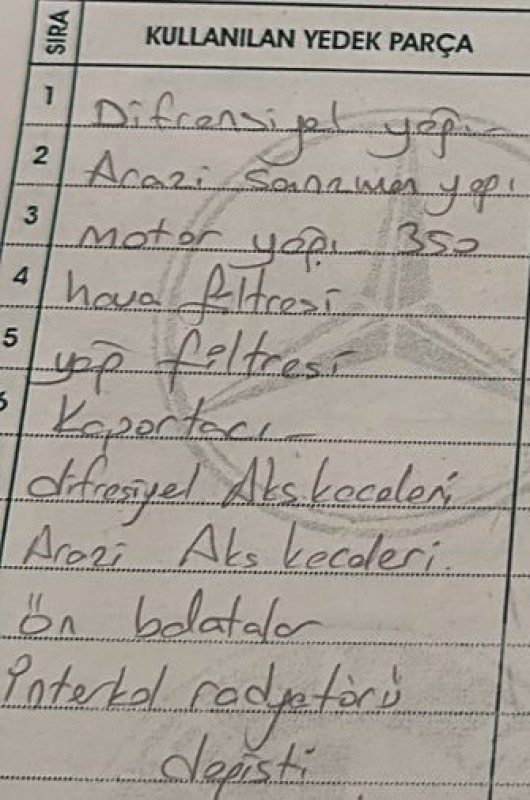 SIRA KULLANILAN YEDEK PARÇA
1 Difransiyel yağı
2 Arazi şanzıman yağı
3 motor yağı 350
4 hava filtresi
5 yağ filtresi
Kaportacı
difresiyel Aks keceleri
Arazi Aks keceleri.
Ön balatalar
İnterkol radyatörü
değişti